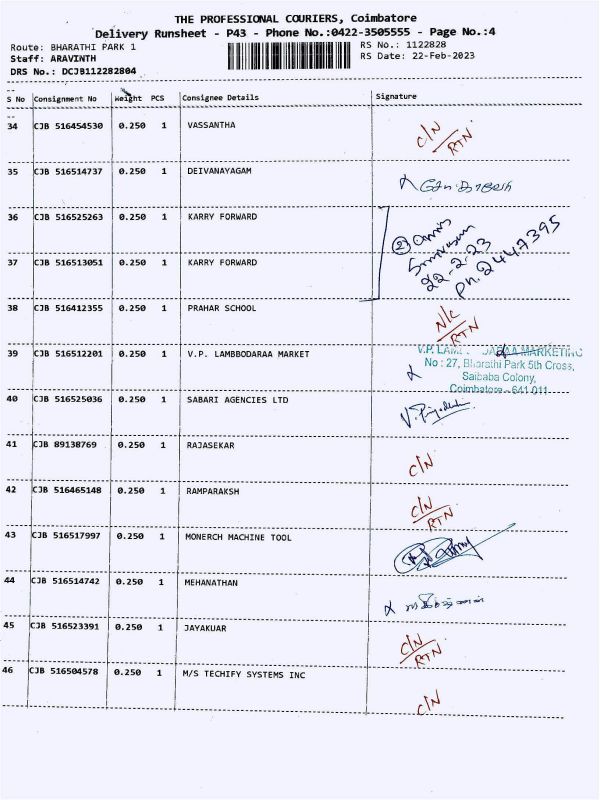 THE PROFESSIONAL COURIERS, Coimbatore
Delivery Runsheet - P43 - Phone No.:0422-3505555 - Page No.:4
Route: BHARATHI PARK 1 RS No.: 1122828
Staff: ARAVINTH RS Date: 22-Feb-2023
DRS No.: DCJB112282804
S No Consignment No Weight PCS Consignee Details Signature
34 CJB 516454530 0.250 1 VASSANTHA C/N
RTN
35 CJB 516514737 0.250 1 DEIVANAYAGAM
36 CJB 516525263 0.250 1 KARRY FORWARD
22-2-23
37 CJB 516513051 0.250 1 KARRY FORWARD Ph. 2447395
38 CJB 516412355 0.250 1 PRAHAR SCHOOL N/C
RTN
39 CJB 516512201 0.250 1 V.P. LAMBBODARAA MARKET V.P. MARKETING
No : 27, Bharathi Park 5th Cross,
Saibaba Colony,
Coimbatore - 641 011
40 CJB 516525036 0.250 1 SABARI AGENCIES LTD
41 CJB 89138769 0.250 1 RAJASEKAR C/N
42 CJB 516465148 0.250 1 RAMPARAKSH C/N
RTN
43 CJB 516517997 0.250 1 MONERCH MACHINE TOOL
44 CJB 516514742 0.250 1 MEHANATHAN
45 CJB 516523391 0.250 1 JAYAKUAR C/N
RTN
46 CJB 516504578 0.250 1 M/S TECHIFY SYSTEMS INC C/N